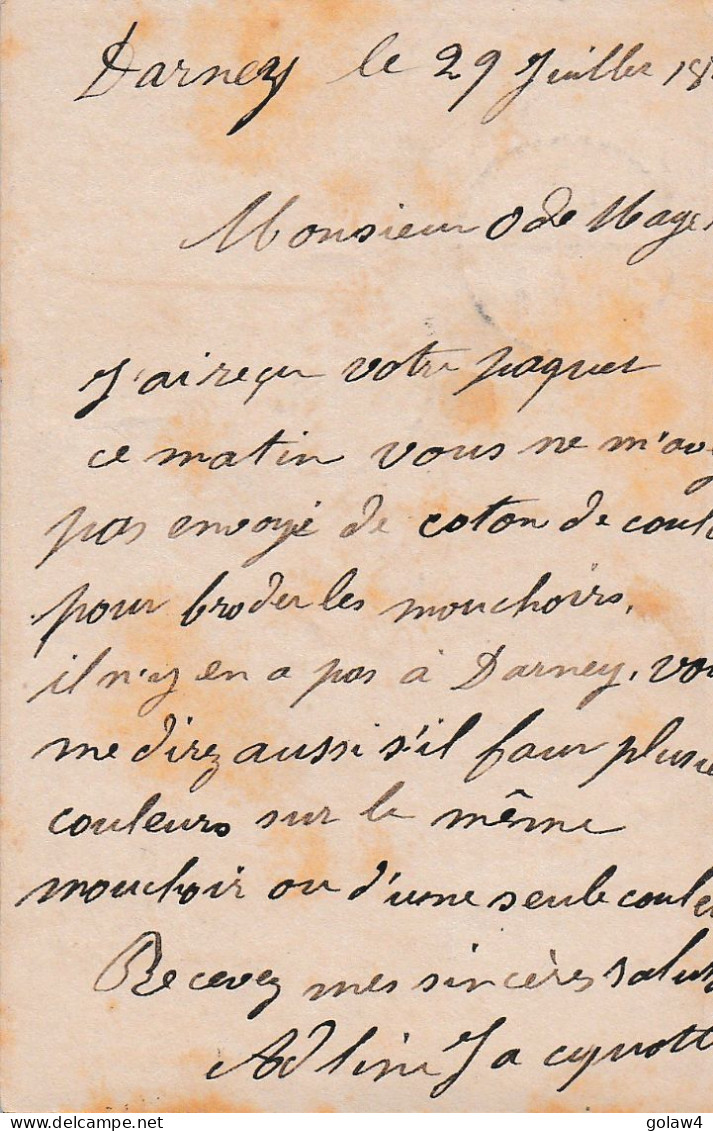 Darney le 29 Juillet 18
Monsieur Ode Mage
J'ai reçu votre paquet
ce matin vous ne m'av
pas envoyé de coton de coul
pour broder les mouchoirs,
il n'y en a pas à Darney, vou
me direz aussi s'il faut plusie
couleurs sur le même
mouchoir ou d'une seule coule
Recevez mes sincères salut
Adline Jacquott
golaw4
delcampe.net